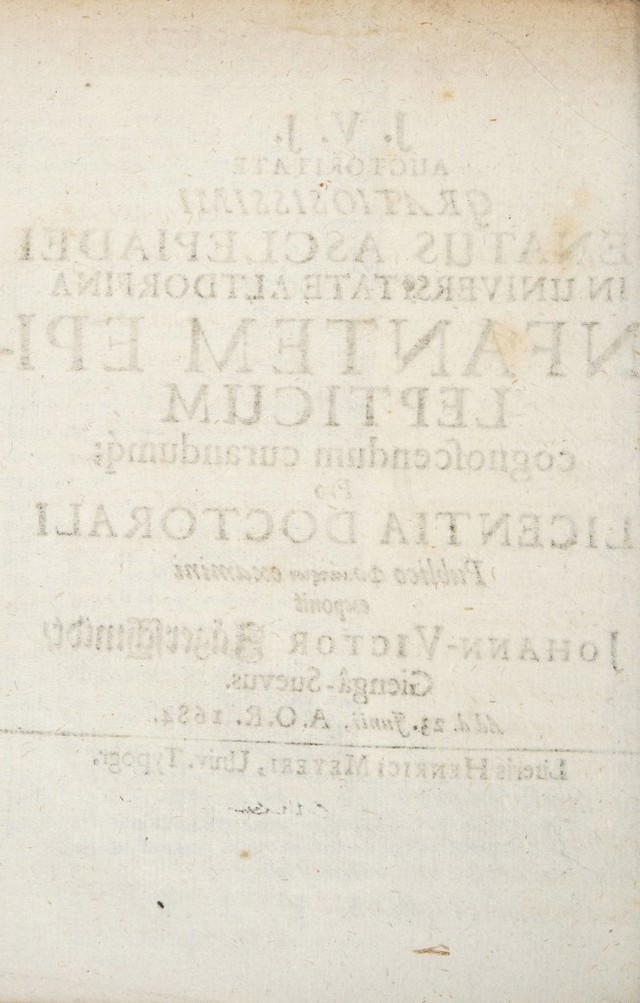 J. V. J.
AUCTORITATE
GRATIOSISSIMI
ENATUS ASCLEPIADEI
IN UNIVERSITATE ALTDORFINA
NFANTEM EPI-
LEPTICUM
cognoscendum curandumq́;
Pro
LICENTIA DOCTORALI
Publico examini
exponit
JOHANN-VICTOR Jägerschmidt/
Giengâ-Suevus.
Ad d. 23. Junii, A.O.R. 1682.
Literis HENRICI MEYERI, Univ. Typogr.